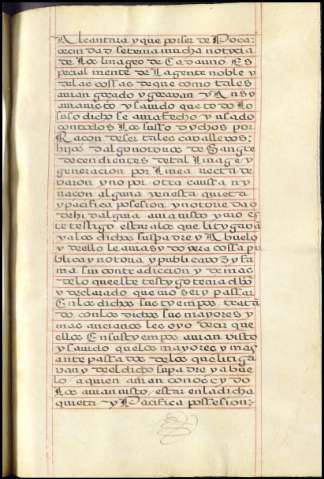 Alcantria y que por ser de Poca
vecindad se tenia mucha notizia
de los linages de Cadauno Es
pecialmente de La gente noble y
de las cossas de que como tales
auian goçado y goçauan y Ansy
auia uisto y sauido que todo Lo
suso dicho le auia fecho y usado
con todos Los suso dychos por
Raçon de ser tales caualleros:
hijos dalgo notorios de Sangre
decendientes de tal Linage y
generacion por Linea recta de
baron y no por otra caussa ni
raçon alguna y en esta quieta
y pacifica posesion y notoriedad
de hidalguia auia uisto y aro es
te testigo estar a lo que litygaua
y a los dichos su padre y Abuelo
y dello le auia sydo y era cossa pu
blica y notoria y publica voz y fa
ma sin contradiccion y demas
de lo que el testygo tenia dho
y declarado que uio ser y pasar
En los dichos sus tyempos trata
do con los dichos sus mayores y
mas ancianos les oyo decir que
ellos En sus tyempos auian uisto
y sauido que los mayores y mas
antepasados de los que litiga
uan y del dicho su padre y abue
lo a quien auian conocydo
Los auian uisto estar en la dicha
quieta y Pacifica possesion:-